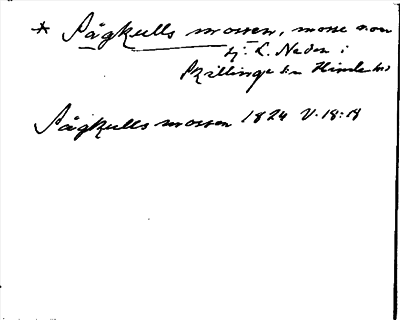 * Sågkulls mossen, mosse nov
sj. L. Neden i
Skillinge sn Himle hd
Sågkulls mossen 1824 V:18:18